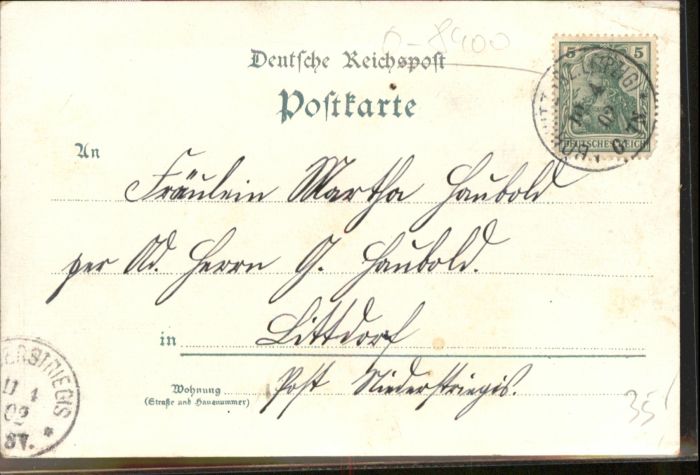 0-8400
Deutsche Reichspost
Postkarte
5 5
DEUTSCHES REICH
An
Fräulein Martha Haubold
per Ad. Herrn G. Haubold.
in Littdorf
Wohnung Post Niederstriegis.
(Straße und Hausnummer)
ERSTRIEGIS
11 4
02
8V.
35